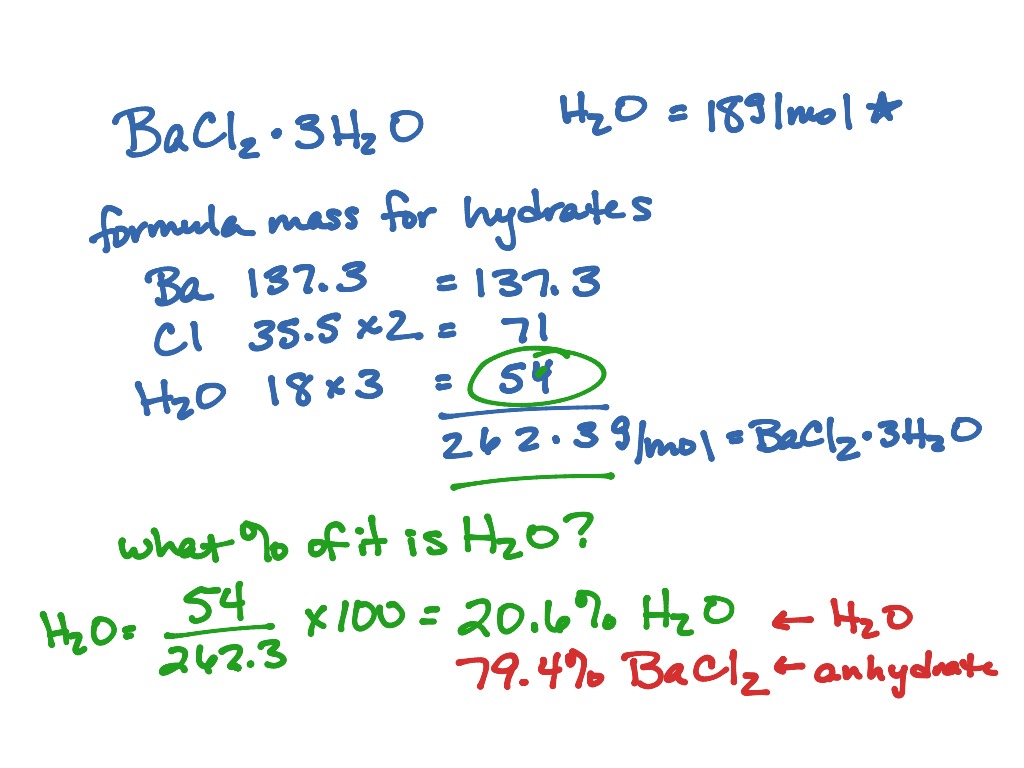 BaCl₂·3H₂O H₂O = 18g/mol ★
formula mass for hydrates
Ba 137.3 = 137.3
Cl 35.5 x2 = 71
H₂O 18 x 3 = 54
262.3 g/mol = BaCl₂·3H₂O
what % of it is H₂O?
H₂O = 54/262.3 x100 = 20.6% H₂O ← H₂O
79.4% BaCl₂ ← anhydrate